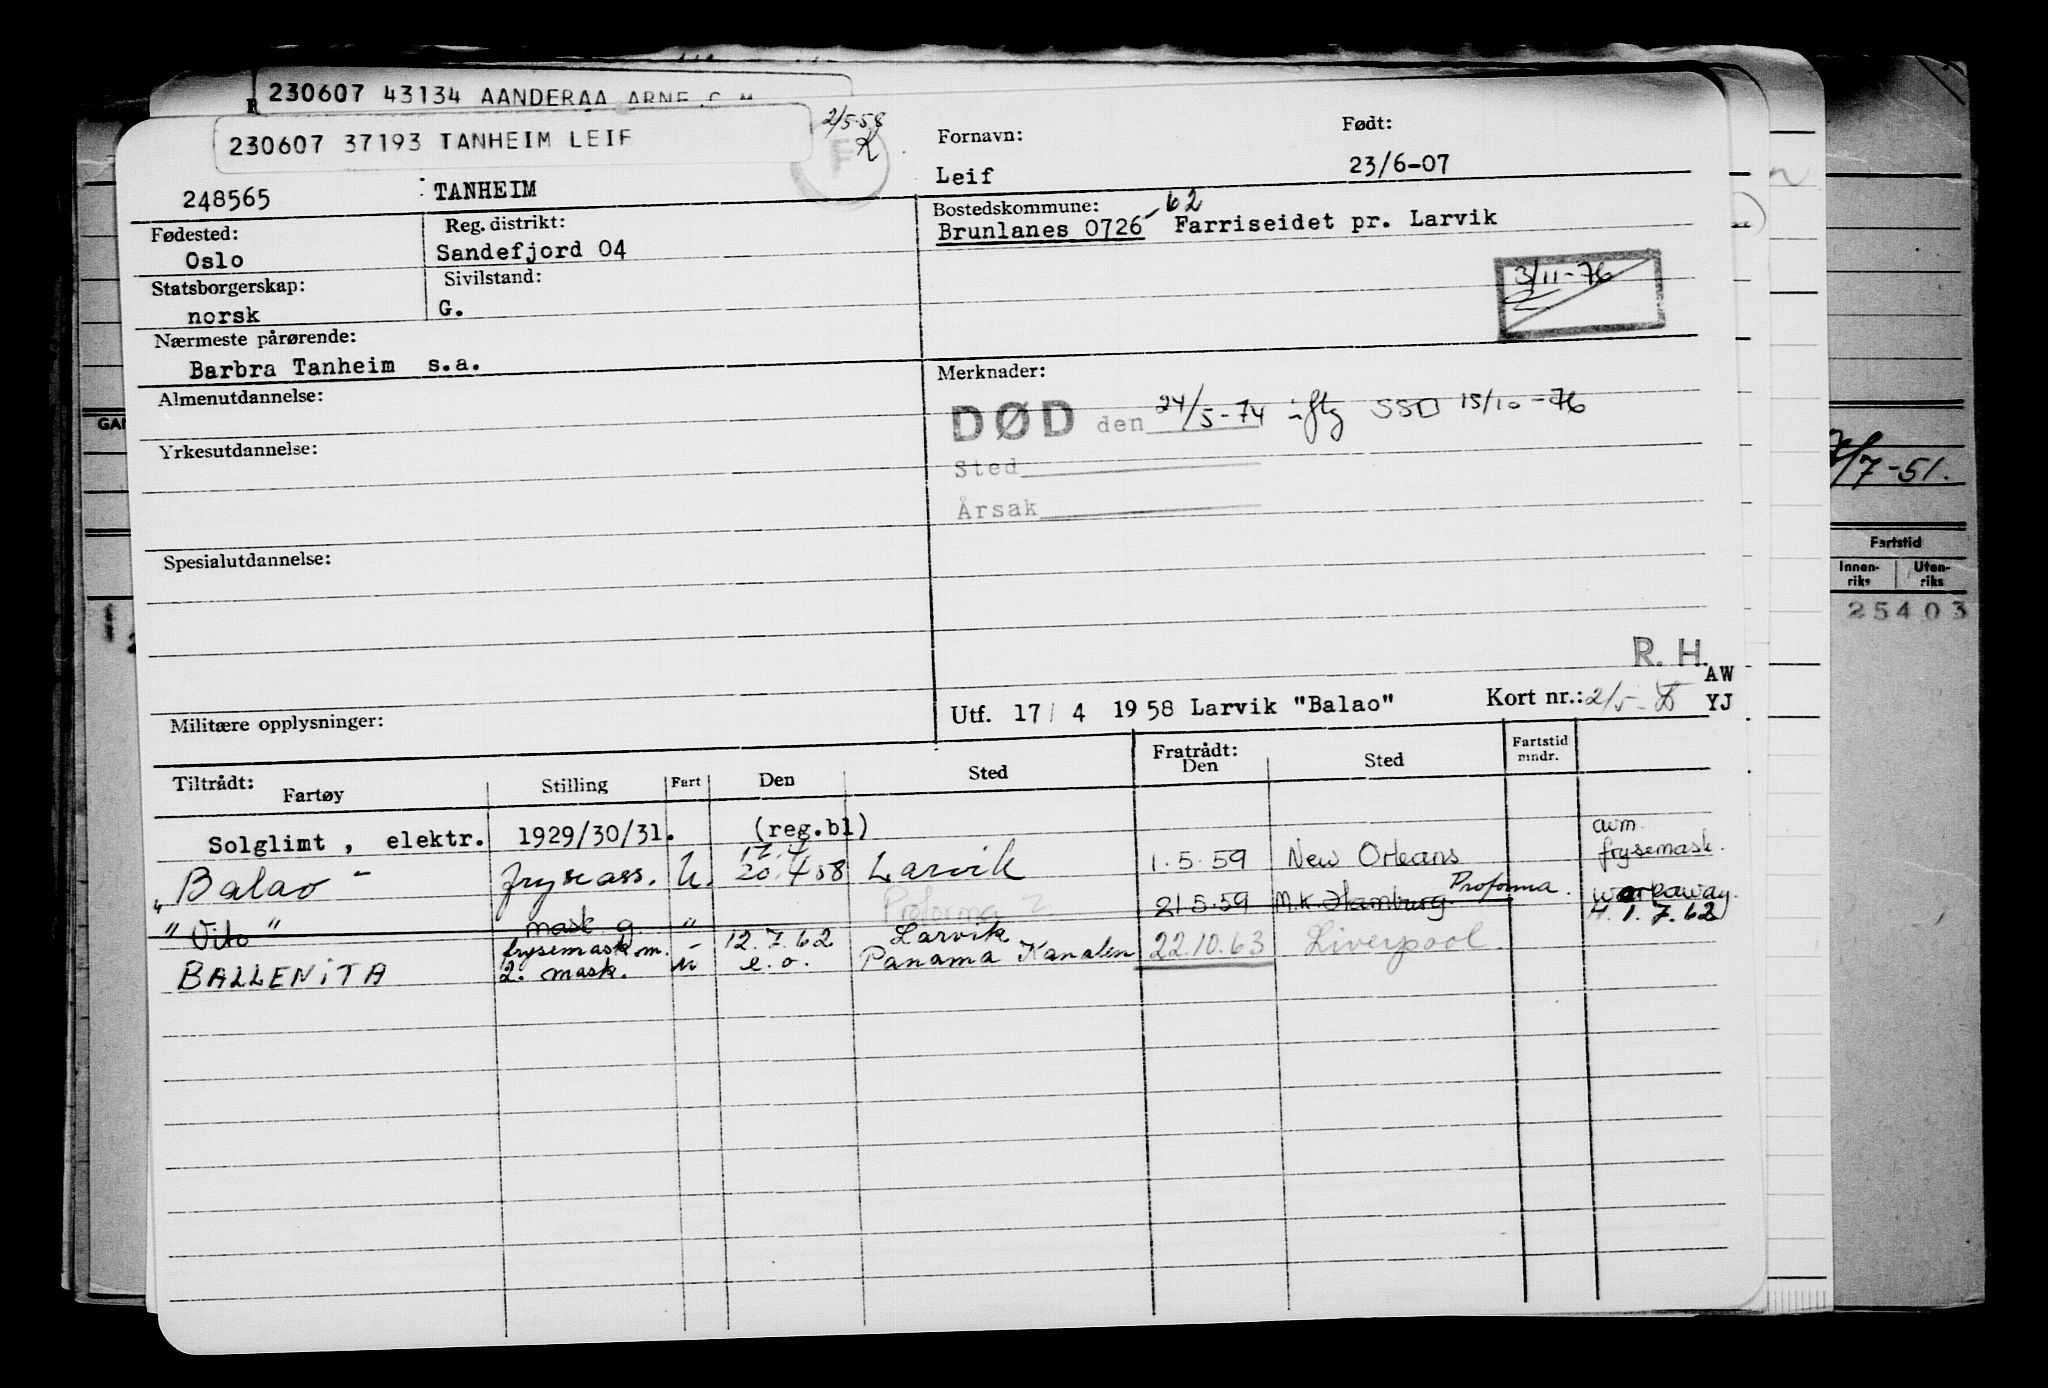 230607 43134 AANDERAA ARNE G M
230607 37193 TANHEIM LEIF
2/5-58
Fornavn:
Født:
248565 TANHEIM
Leif
23/6-07
Fødested:
Reg. distrikt:
Bostedskommune: -62
Oslo
Sandefjord 04
Brunlanes 0726 Farriseidet pr. Larvik
Statsborgerskap:
Sivilstand:
norsk
G.
3/11-76
Nærmeste pårørende:
Barbra Tanheim s.a.
Merknader:
Almenutdannelse:
DØD den 24/5-74 iflg SSB 15/10-76
Yrkesutdannelse:
Sted
Årsak
Spesialutdannelse:
R. H.
AW
Militære opplysninger:
Utf. 17/ 4 1958 Larvik "Balao"
Kort nr.: 2/5-
YJ
Tiltrådt:
Fartøy
Stilling
Fart
Den
Sted
Fratrådt:
Den
Sted
Fartstid
mndr.
Solglimt , elektr. 1929/30/31. (reg.bl)
17.4
"Balao" fryseass. U. 20.4.58 Larvik 1.5.59 New Orleans avm. frysemask.
"Vito" mask g. " Proforma 2 21.5.59 M.K. Hamburg Proforma. workaway.
H. 1.7.62
frysemask.m. - 12.7.62 Larvik
BALLENITA 2. mask. u e.o. Panama Kanalen 22.10.63 Liverpool.
7-51.
Fartstid
Innen-
riks
Uten-
riks
25403